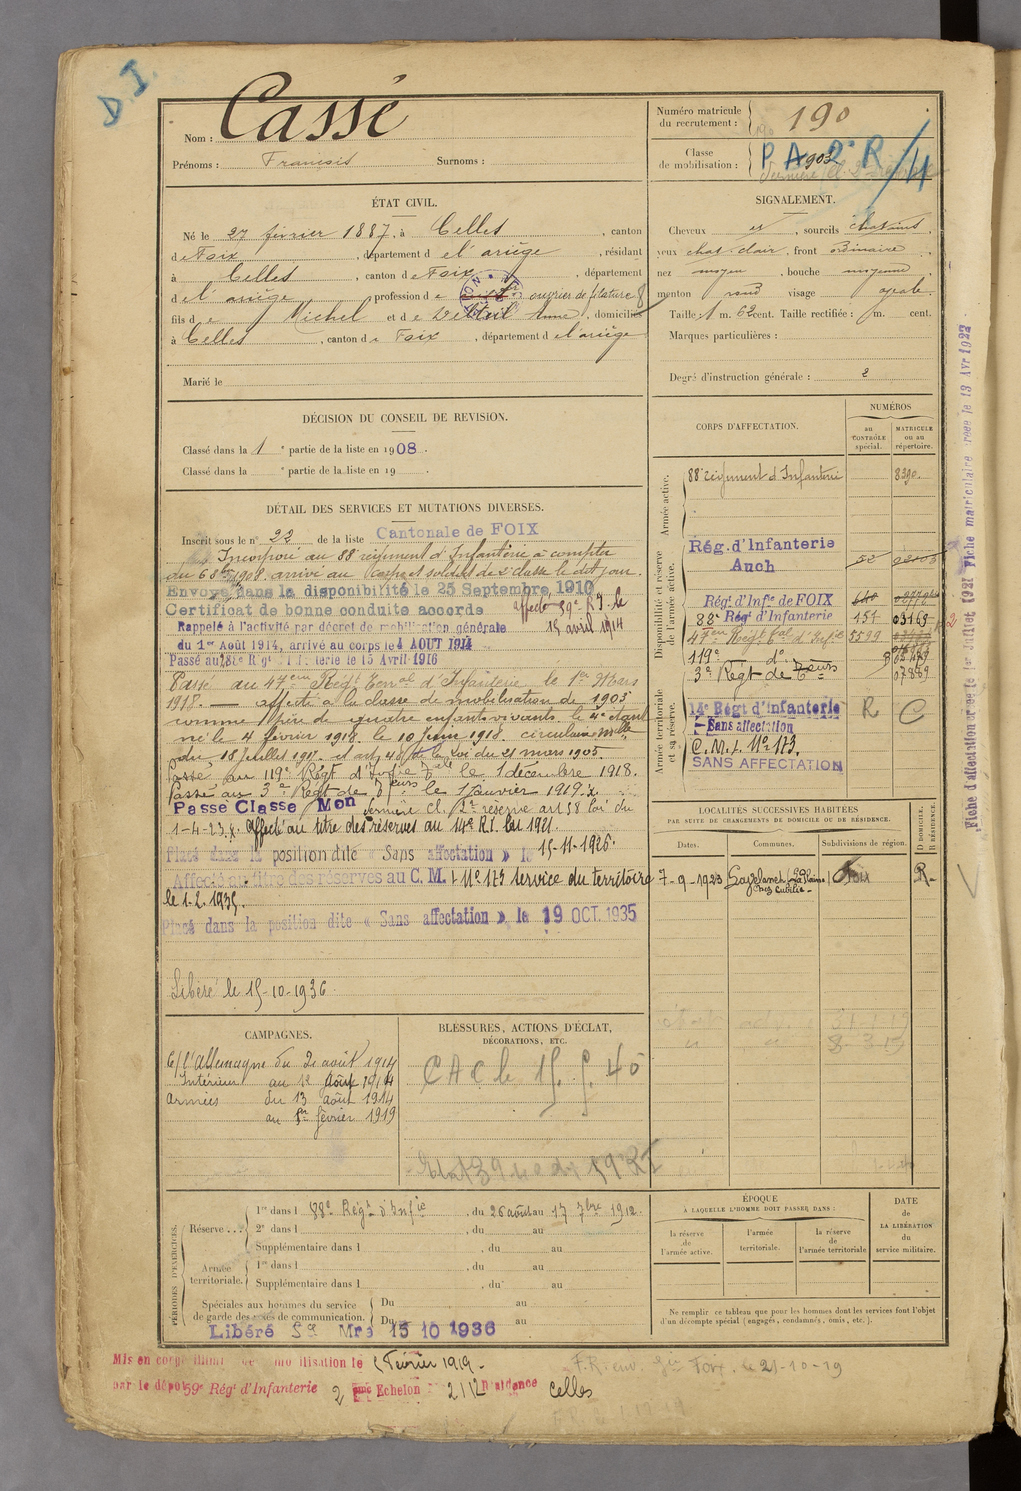 D. I.
Nom : Cassé
Prénoms : François Surnoms :
Numéro matricule du recrutement : 190
Classe de mobilisation : P A 2e R /4
1903
ÉTAT CIVIL.
Né le 27 février 1887, à Celles, canton
de Foix, département d el'ariège, résidant
à Celles, canton de Foix, département
d el'ariège, profession de ouvrier de filature
fils de Michel et de Anne, domiciliés
à Celles, canton de Foix, département d el'ariège
Marié le
SIGNALEMENT.
Cheveux et, sourcils chatains
yeux chat. clair, front ordinaire
nez moyen, bouche moyenne
menton rond visage ovale.
Taille 1 m. 62 cent. Taille rectifiée : m. cent.
Marques particulières :
Degré d'instruction générale : 2
DÉCISION DU CONSEIL DE REVISION.
Classé dans la 1e partie de la liste en 1908.
Classé dans la e partie de la liste en 19 .
DÉTAIL DES SERVICES ET MUTATIONS DIVERSES.
Inscrit sous le n° 22 de la liste Cantonale de FOIX
Incorporé au 88e régiment d'Infanterie à compter
du 6 8bre 1908. arrivé au Corps et soldat de 2e classe le dit jour.
Envoyé dans la disponibilité le 25 Septembre 1910
Certificat de bonne conduite accordé
affecté 59e R.I. le
15 avril 1914
Rappelé à l'activité par décret de mobilisation générale
du 1er Août 1914, arrivé au corps le 4 AOUT 1914
Passé au 88e Régt d'Infanterie le 15 Avril 1916
Passé au 47eme Régt Terrial d'Infanterie le 1er Mars
1918. — affecté à la classe de mobilisation de 1903
comme père de quatre enfants vivants, le 4e étant
né le 4 février 1918, le 10 Juin 1918. circulaire Mlle
du 18 Juillet 1917. et art. 48 de la loi du 21 mars 1905.
Passé au 119e Régt d'Infie Tale le 1 décembre 1918.
Passé au 3e Régt de le 1 Janvier 1919.
Passé Classe Mon dernière cl. 2e réserve art 58 loi du
1-4-23. Affecté au titre des réserves au 14e R.I. loi 1921.
Placé dans la position dite « Sans affectation » le 15-11-1926.
Affecté au titre des réserves au C. M. I. N° 173 service du territoire
le 1.2.1935.
Placé dans la position dite « Sans affectation » le 19 OCT. 1935
Libéré le 15-10-1936
CORPS D'AFFECTATION.
NUMÉROS
au CONTRÔLE spécial.
MATRICULE ou au répertoire.
Armée active.
88e régiment d'Infanterie 8390.
Disponibilité et réserve de l'armée active.
Rég. d'Infanterie
Auch 52
Régt d'Infie de FOIX
88e Régt d'Infanterie 151 03163
47eme Régt Tal d'Infie 5599
119e d°
3e Régt de 07889
Armée territoriale et sa réserve.
14e Régt d'infanterie R C
Sans affectation
C. M. I. N° 173.
SANS AFFECTATION
LOCALITÉS SUCCESSIVES HABITÉES
PAR SUITE DE CHANGEMENTS DE DOMICILE OU DE RÉSIDENCE.
Dates. Communes. Subdivisions de région. D DOMICILE. R RÉSIDENCE.
7-9-1923 Lavelanet Foix R.
CAMPAGNES.
C/ l'Allemagne du 2 août 1914
Intérieur au 12 Août 1914
Armées du 13 août 1914
au 1er février 1919
BLESSURES, ACTIONS D'ÉCLAT,
DÉCORATIONS, ETC.
CAC le 15. 5. 40
PÉRIODES D'EXERCICES.
Réserve . . . 1re dans l 88e Régt d'Infie, du 26 août au 17 7bre 1912.
2e dans l , du au
Supplémentaire dans l , du au
Armée territoriale. 1re dans l , du au
Supplémentaire dans l , du au
Spéciales aux hommes du service de garde des voies de communication. Du au
Du au
Libéré Sce Mre 15 10 1936
ÉPOQUE
A LAQUELLE L'HOMME DOIT PASSER DANS :
la réserve de l'armée active. l'armée territoriale. la réserve de l'armée territoriale
DATE de LA LIBÉRATION du service militaire.
Ne remplir ce tableau que pour les hommes dont les services font l'objet
d'un décompte spécial (engagés, condamnés, omis, etc.).
Mis en congé illimité de démobilisation le 1 Février 1919 -
par le dépôt 59e Régt d'Infanterie 2 eme Echelon Résidence Celles
F.R. env. Foix. le 21-10-19
Fiche d'affectation créée le 1er Juillet 1921
Fiche matriculaire créée le 13 Avr 1927